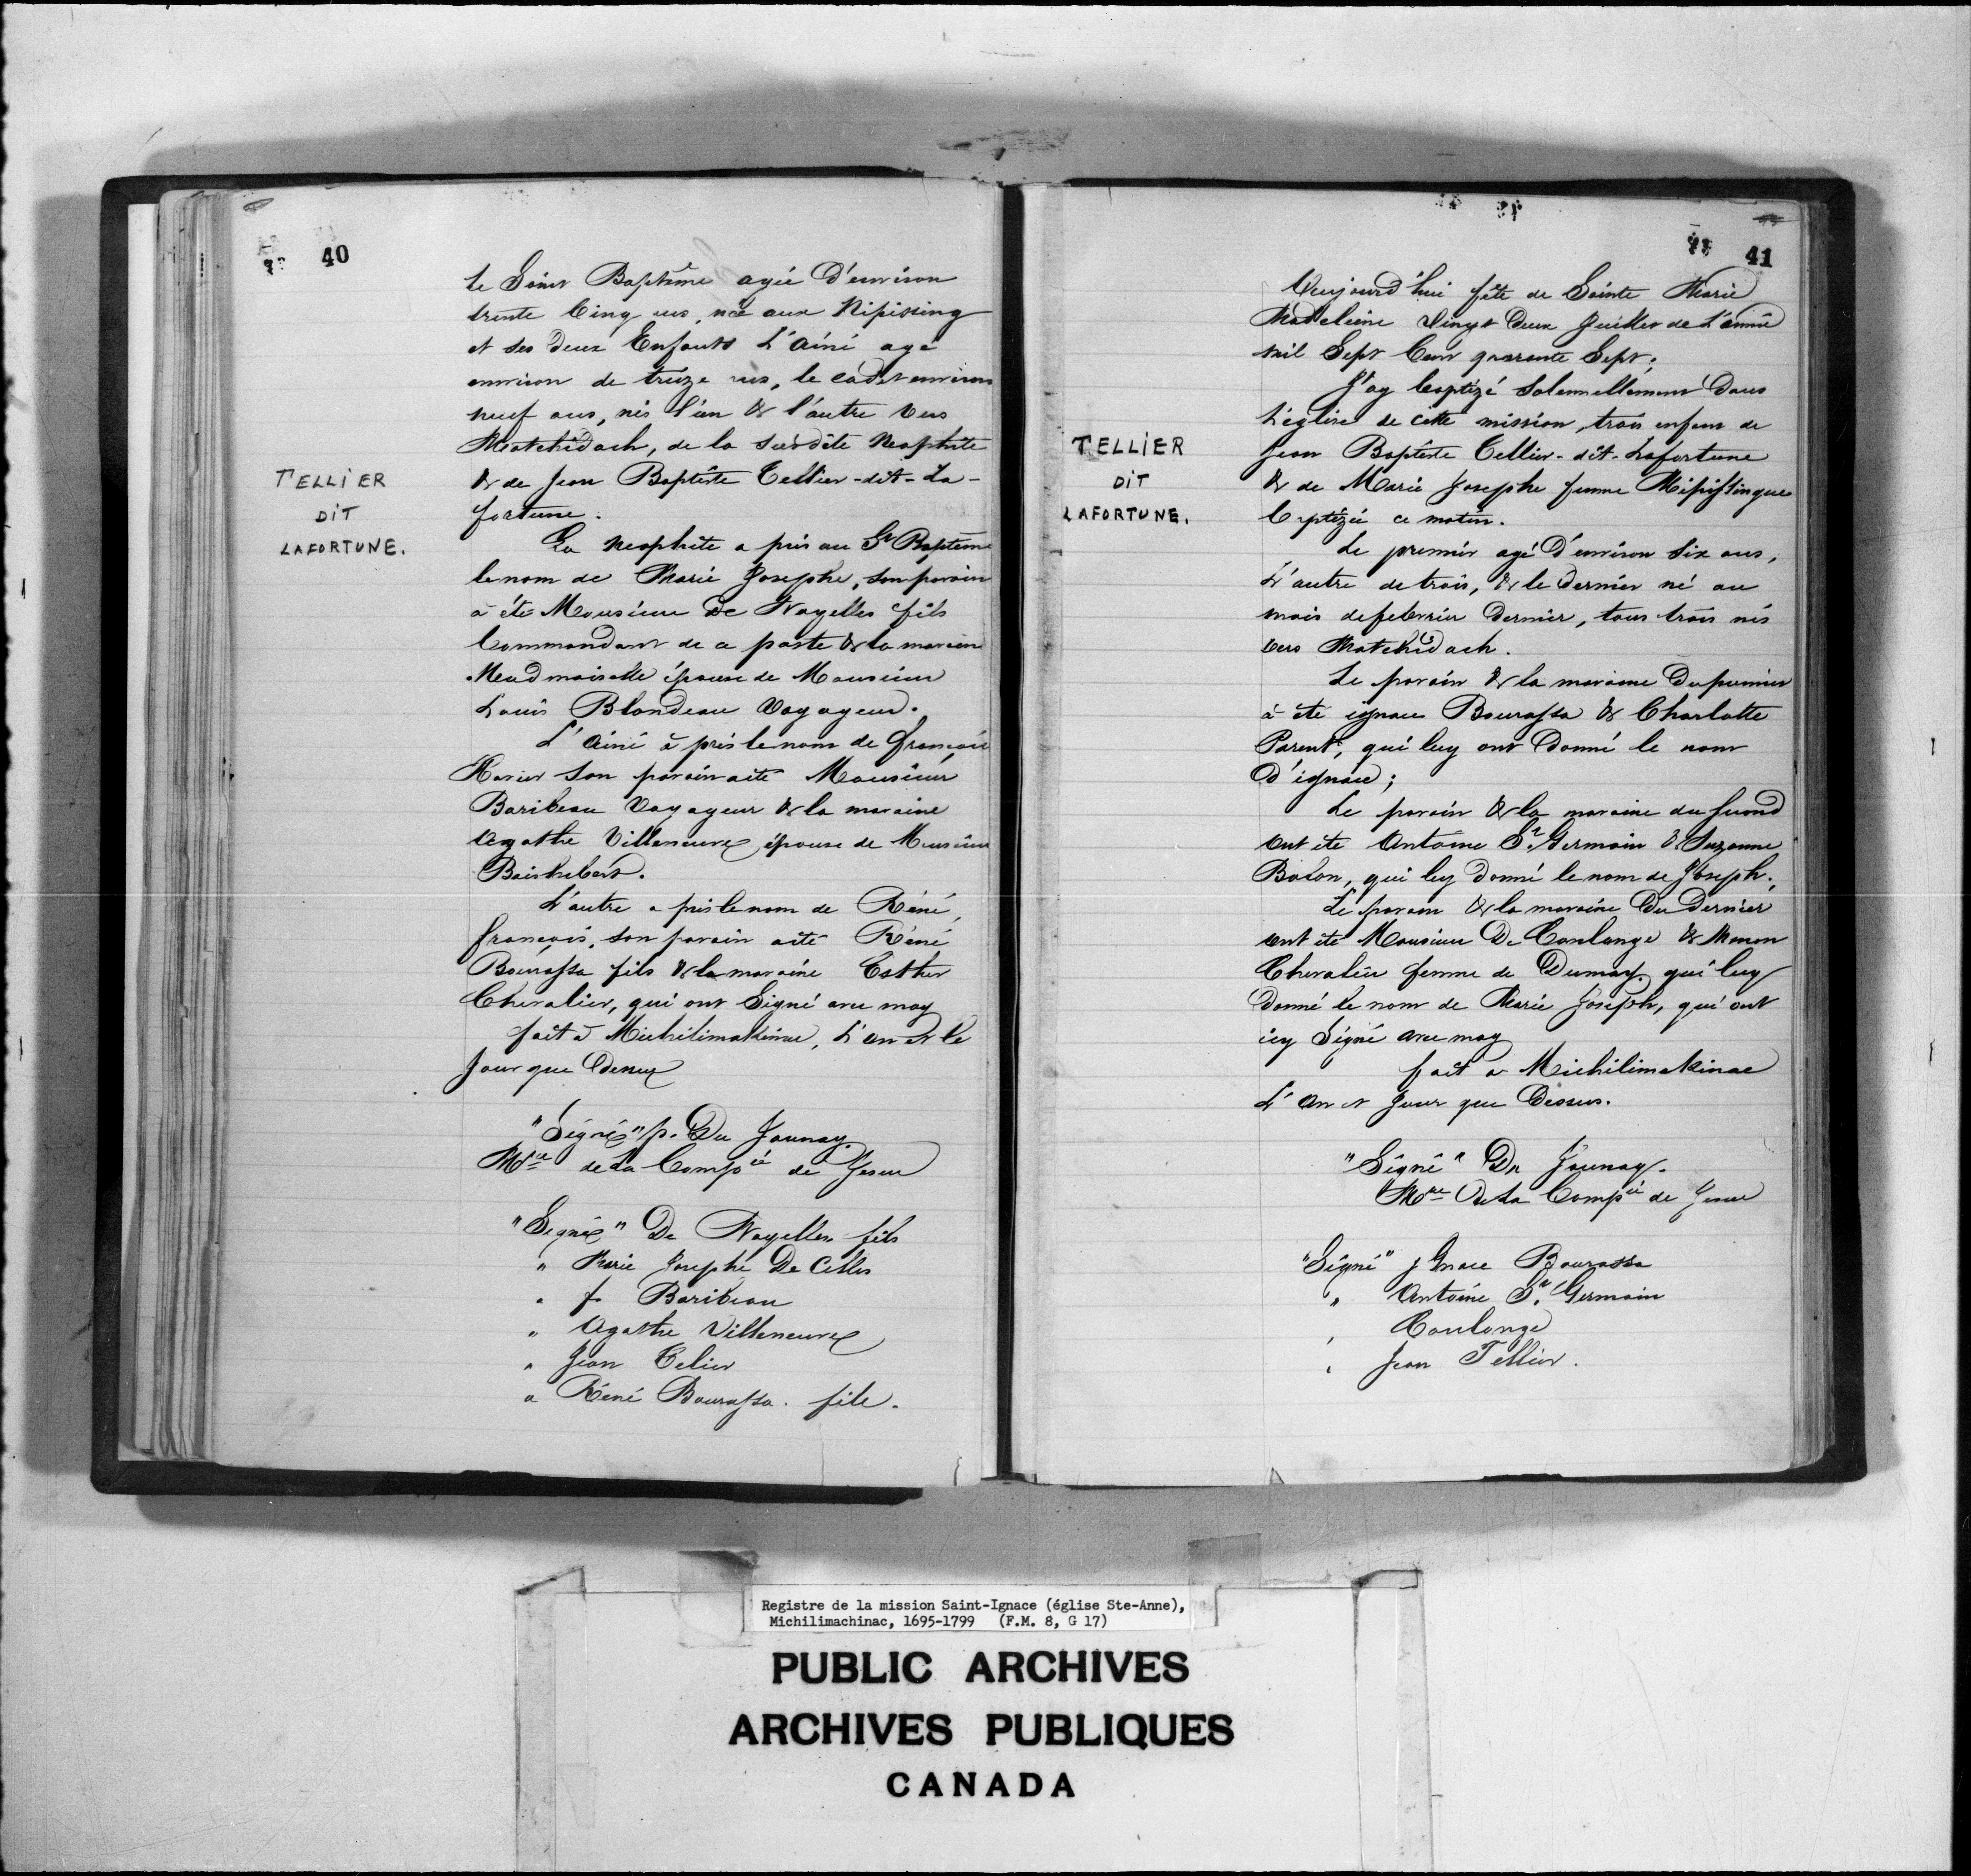 40
le Saint Baptême agée D'environ
trente Cinq ans, née aux Nipissing
et ses deux Enfants L'Ainé agé
environ de treize ans, le cadet environ
neuf ans, nés l'un & l'autre vers
Matchidach, de la susdite Neophite
TELLIER
DIT
LAFORTUNE.
& de Jean Baptiste Tellier-dit-La-
fortune.
La Neophite a pris au St Baptême
le nom de Marie Josephe, son parain
a été Monsieur De Noyelles fils
Commandant de ce poste & la maraine
Madmoiselle épouse de Monsieur
Louis Blondeau Voyageur.
L'Ainé a pris le nom de françois
Xavier son parain a été Monsieur
Baribeau Voyageur & la maraine
Agathe Villeneuve épouse de Monsieur
Boishebert.
L'autre a pris le nom de Réné,
françois, son parain a été Réné
Bourassa fils & la maraine Esther
Chevalier, qui ont Signé avec moy
fait à Michilimakinac, L'an et le
Jour que Dessus
"Signé" p. Du Jaunay
Mre de La Compie de Jesus
"Signé" De Noyelles fils
" Marie Josephe De Celles
" f Baribeau
" Agathe Villeneuve
" Jean Telier
" Réné Bourassa. fils.
41
Aujourd'hui fête de Sainte Marie
Madeleine Vingt Deux Juillet de L'année
mil Sept Cent quarante Sept;
J'ay baptizé Solennellement Dans
L'église de cette mission, trois enfans de
TELLIER
DIT
LAFORTUNE.
Jean Baptiste Tellier-dit-Lafortune
& de Marie Josephe femme Nipissingue
baptizée ce matin.
Le premier agé D'environ Six ans,
L'autre de trois, & le Dernier né au
mois de febvrier Dernier, tous trois nés
vers Matchidach.
Le parain & la maraine Du premier
a été ignace Bourassa & Charlotte
Parent, qui luy ont Donné le nom
D'ignace;
Le parain & la maraine du second
ont été Antoine St Germain & Suzanne
qui luy donné le nom de Joseph.
Le parain & la maraine Du Dernier
ont été Monsieur De Coulange & Manon
Chevalier femme de Dumay. qui luy
donné le nom de Marie Joseph, qui ont
icy Signé avec moy
fait a Michilimakinac
L'An et Jour que Dessus.
"Signé" Du Jaunay.
Mre De La Compie de Jesus
"Signé" Ignace Bourassa
" Antoine St. Germain
" Coulonge
" Jean Tellier.
Registre de la mission Saint-Ignace (église Ste-Anne),
Michilimachinac, 1695-1799 (F.M. 8, G 17)
PUBLIC ARCHIVES
ARCHIVES PUBLIQUES
CANADA